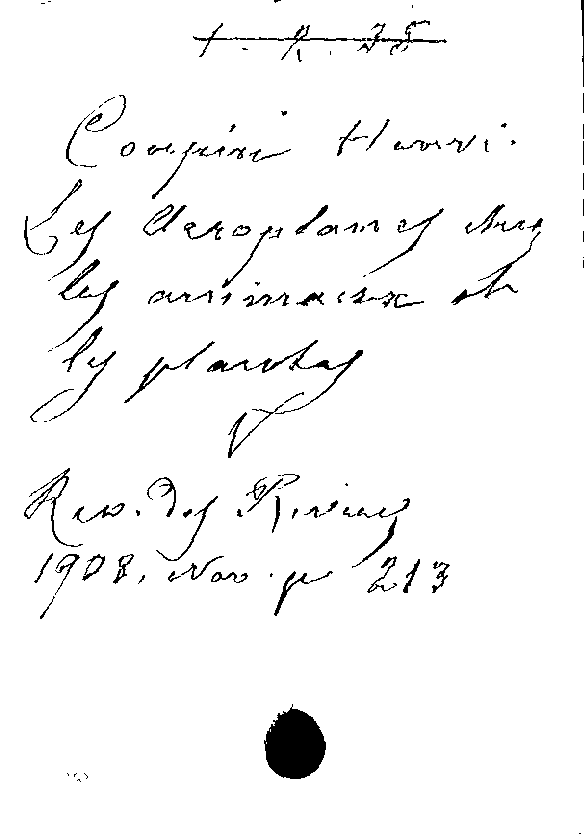 Coupin Henri.
Les Aeroplanes chez
les animaux et
les plantes
Rev. des Revues
1908, Nov. p 213